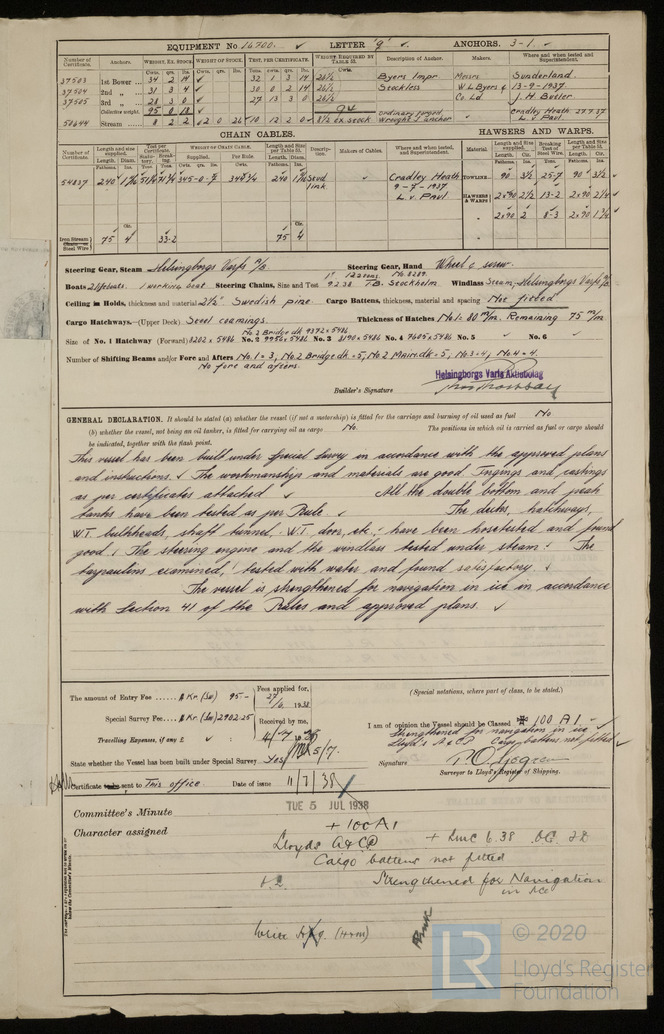 EQUIPMENT No 16700. LETTER "q" ANCHORS. 3-1.
Number of Certificate. Anchors. WEIGHT, EX. STOCK. WEIGHT OF STOCK. TEST, PER CERTIFICATE. WEIGHT REQUIRED BY TABLE 53. Description of Anchor. Makers. Where and when tested and Superintendent.
37503 1st Bower 34 2 14 32 1 3 14 26½ Byers Impr Messrs Sunderland.
37504 2nd „ 31 3 4 30 0 2 14 26½ Stockless W.L Byers & 13-9-1937.
37505 3rd „ 28 3 0 27 13 3 0 26½ Co Ld. J.H. Butler
Collective weight. 95 0 18 94
50644 Stream 8 2 2 2 0 26 10 12 2 0 8½ ex stock ordinary forged wrought I anchor Cradley Heath 27.7.37 L.v. Paul.
CHAIN CABLES. HAWSERS AND WARPS.
Number of Certificate. Length and size supplied. Test per Certificate. WEIGHT OF CHAIN CABLE. Length and size per Table 53. Description. Makers of Cables. Where and when tested, and Superintendent. Material. Length and Size supplied. Breaking Test of Steel Wire. Length and Size per Table 53.
Supplied. Per Rule.
54837 240 345-0-7 240 Stud link Cradley Heath 9-7-1937 L.v. Paul TOWLINE 90 3½ 25-7 90 3½
HAWSERS & WARPS 2x90 2½ 13-2 2x90 2½
2x90 2 8-3 2x90 1¾
Iron Stream or Steel Wire 75 4 33-2 75 4
Steering Gear, Steam Helsingborgs Varfs A/B Steering Gear, Hand Wheel & screw.
Boats 2 lifeboats. 1 working boat Steering Chains, Size and Test Stockholm Windlass Steam, Helsingborgs Varfs A/B
Ceiling in Holds, thickness and material 2½" Swedish pine. Cargo Battens, thickness, material and spacing Not fitted
Cargo Hatchways.—(Upper Deck) Steel coamings. Thickness of Hatches No 1= 80 m/m. Remaining 75 m/m
No 2 Bridge dk 9392 x 5486
Size of No. 1 Hatchway (Forward) 8202 x 5486 No. 2 9950 x 5486 No. 3 8190 x 5486 No. 4 7605 x 5486 No. 5 No. 6
Number of Shifting Beams and/or Fore and Afters No 1 = 3, No 2 Bridge dk = 5, No 2 Main dk = 5, No 3 = 4, No 4 = 4.
No fore and afters.
Helsingborgs Varfs Aktiebolag
Builder's Signature
GENERAL DECLARATION. It should be stated (a) whether the vessel (if not a motorship) is fitted for the carriage and burning of oil used as fuel No
(b) whether the vessel, not being an oil tanker, is fitted for carrying oil as cargo No. The positions in which oil is carried as fuel or cargo should
be indicated, together with the flash point.
This vessel has been built under special survey in accordance with the approved plans
and instructions. The workmanship and materials are good. Forgings and castings
as per certificates attached All the double bottom and peak
tanks have been tested as per Rule. The decks, hatchways,
W.T. bulkheads, shaft tunnel, W.T. door, etc., have been hosetested and found
good. The steering engine and the windlass tested under steam. The
tarpaulins examined, tested with water and found satisfactory.
The vessel is strengthened for navigation in ice in accordance
with Section 41 of the Rules and approved plans.
The amount of Entry Fee Kr (Sw) 95- Fees applied for, 27/6. 1938
Special Survey Fee Kr (Sw) 2902.25 Received by me,
Travelling Expenses, if any £
State whether the Vessel has been built under Special Survey Yes
Certificate to be sent to This office. Date of issue 11/7/38
(Special notations, where part of class, to be stated.)
I am of opinion the Vessel should be Classed ✠ 100 A1
Strengthened for navigation in ice
Lloyd's A & CP Cargo battens not fitted
Signature
Surveyor to Lloyd's Register of Shipping.
Committee's Minute TUE 5 JUL 1938
Character assigned + 100 A1
Lloyds A & CP + LMC 6.38 OG
Cargo battens not fitted
Strengthened for Navigation
in ice
LR
© 2020
Lloyd's Register
Foundation